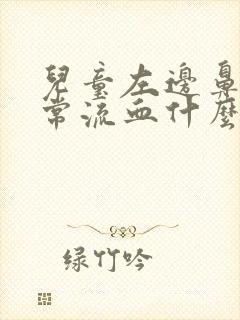 兒童左邊鼻
常流血什麼
绿竹吟